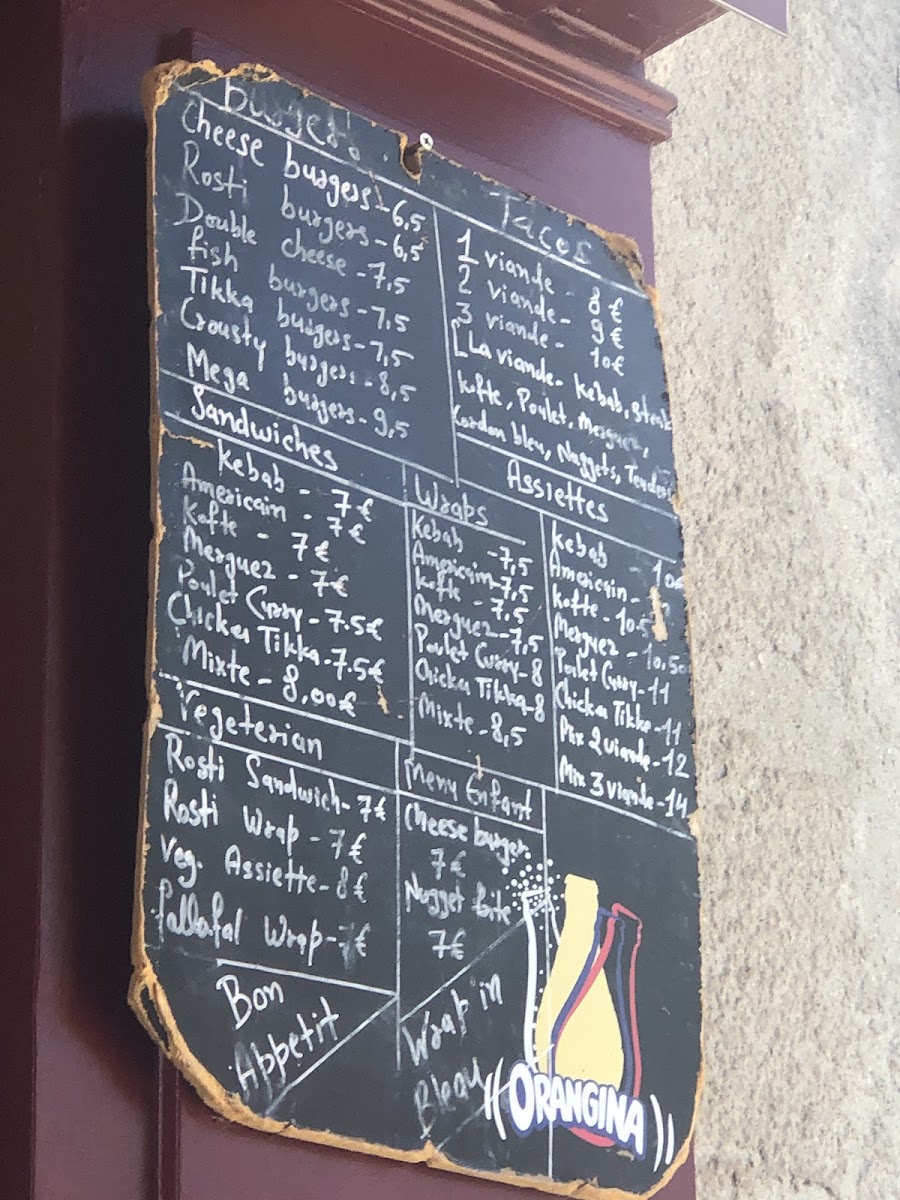 Burgers
Cheese burgers - 6,5
Rosti burgers - 6,5
Double cheese - 7,5
fish burgers - 7,5
Tikka burgers - 7,5
Crousty burgers - 8,5
Mega burgers - 9,5
Tacos
1 viande - 8 €
2 viande - 9 €
3 viande - 10€
La viande - Kebab, Steak
Kofte, Poulet, Merguez,
Cordon bleu, Nuggets, Tenders
Sandwiches
Kebab - 7 €
Americain - 7 €
Kofte - 7 €
Merguez - 7€
Poulet Curry - 7.5€
Chicken Tikka - 7.5€
Mixte - 8,00€
Wraps
Kebab - 7,5
Americain - 7,5
Kofte - 7,5
Merguez - 7,5
Poulet Curry - 8
Chicken Tikka - 8
Mixte - 8,5
Assiettes
Kebab - 10€
Americain -
Kofte - 10.5
Merguez - 10,50
Poulet Curry - 11
Chicken Tikka - 11
Mix 2 viande - 12
Mix 3 viande - 14
Vegeterian
Rosti Sandwich - 7€
Rosti Wrap - 7€
Veg. Assiette - 8€
fallafal Wrap - 7€
Meny Enfant
Cheese burger
7€
Nugget frite
7€
Bon
Appetit
Wrap in
Bleau
ORANGINA